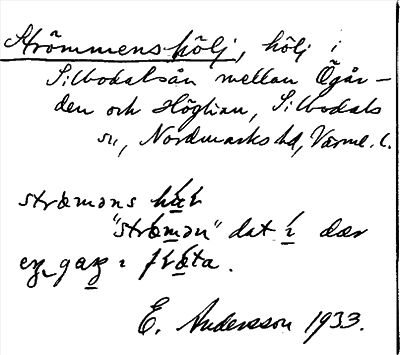 Strömmenshölj, hölj i
Silbodalsån mellan Ögår-
den och Höglian, Silbodals
sn, Nordmarks hd, Värml. l.
stræmǝns
"stræmǝn" dat ɩ dær
ɩ
E. Andersson 1933.